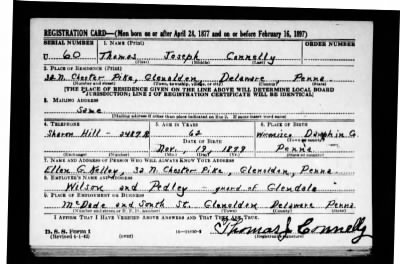 REGISTRATION CARD—(Men born on or after April 28, 1877 and on or before February 16, 1897)
SERIAL NUMBER 1. NAME (Print) ORDER NUMBER
U 60 Thomas Joseph Connelly
(First) (Middle) (Last)
2. PLACE OF RESIDENCE (Print)
32 N. Chester Pike, Glenolden Delaware Penna
(Number and street) (Town, township, village, or city) (County) (State)
[THE PLACE OF RESIDENCE GIVEN ON THE LINE ABOVE WILL DETERMINE LOCAL BOARD
JURISDICTION; LINE 2 OF REGISTRATION CERTIFICATE WILL BE IDENTICAL]
3. MAILING ADDRESS
Same
[Mailing address if other than place indicated on line 2. If same insert word same]
4. TELEPHONE 5. AGE IN YEARS 6. PLACE OF BIRTH
Sharon Hill - 62 Dauphin Co.
DATE OF BIRTH
Nov. 19, Penna
(Exchange) (Number) (Mo.) (Day) (Yr.) (State or country)
7. NAME AND ADDRESS OF PERSON WHO WILL ALWAYS KNOW YOUR ADDRESS
Ellen G. Kelley, 32 N. Chester Pike, Glenolden, Penna
8. EMPLOYER'S NAME AND ADDRESS
Wilson and Pedley - guard of Glendale
9. PLACE OF EMPLOYMENT OR BUSINESS
McDade and South St. Glenolden Delaware Penna
(Number and street or R. F. D. number) (Town) (County) (State)
I AFFIRM THAT I HAVE VERIFIED ABOVE ANSWERS AND THAT THEY ARE TRUE.
D. S. S. Form 1
(Revised 4-1-42) (over) Thomas J. Connelly
(Registrant's signature)